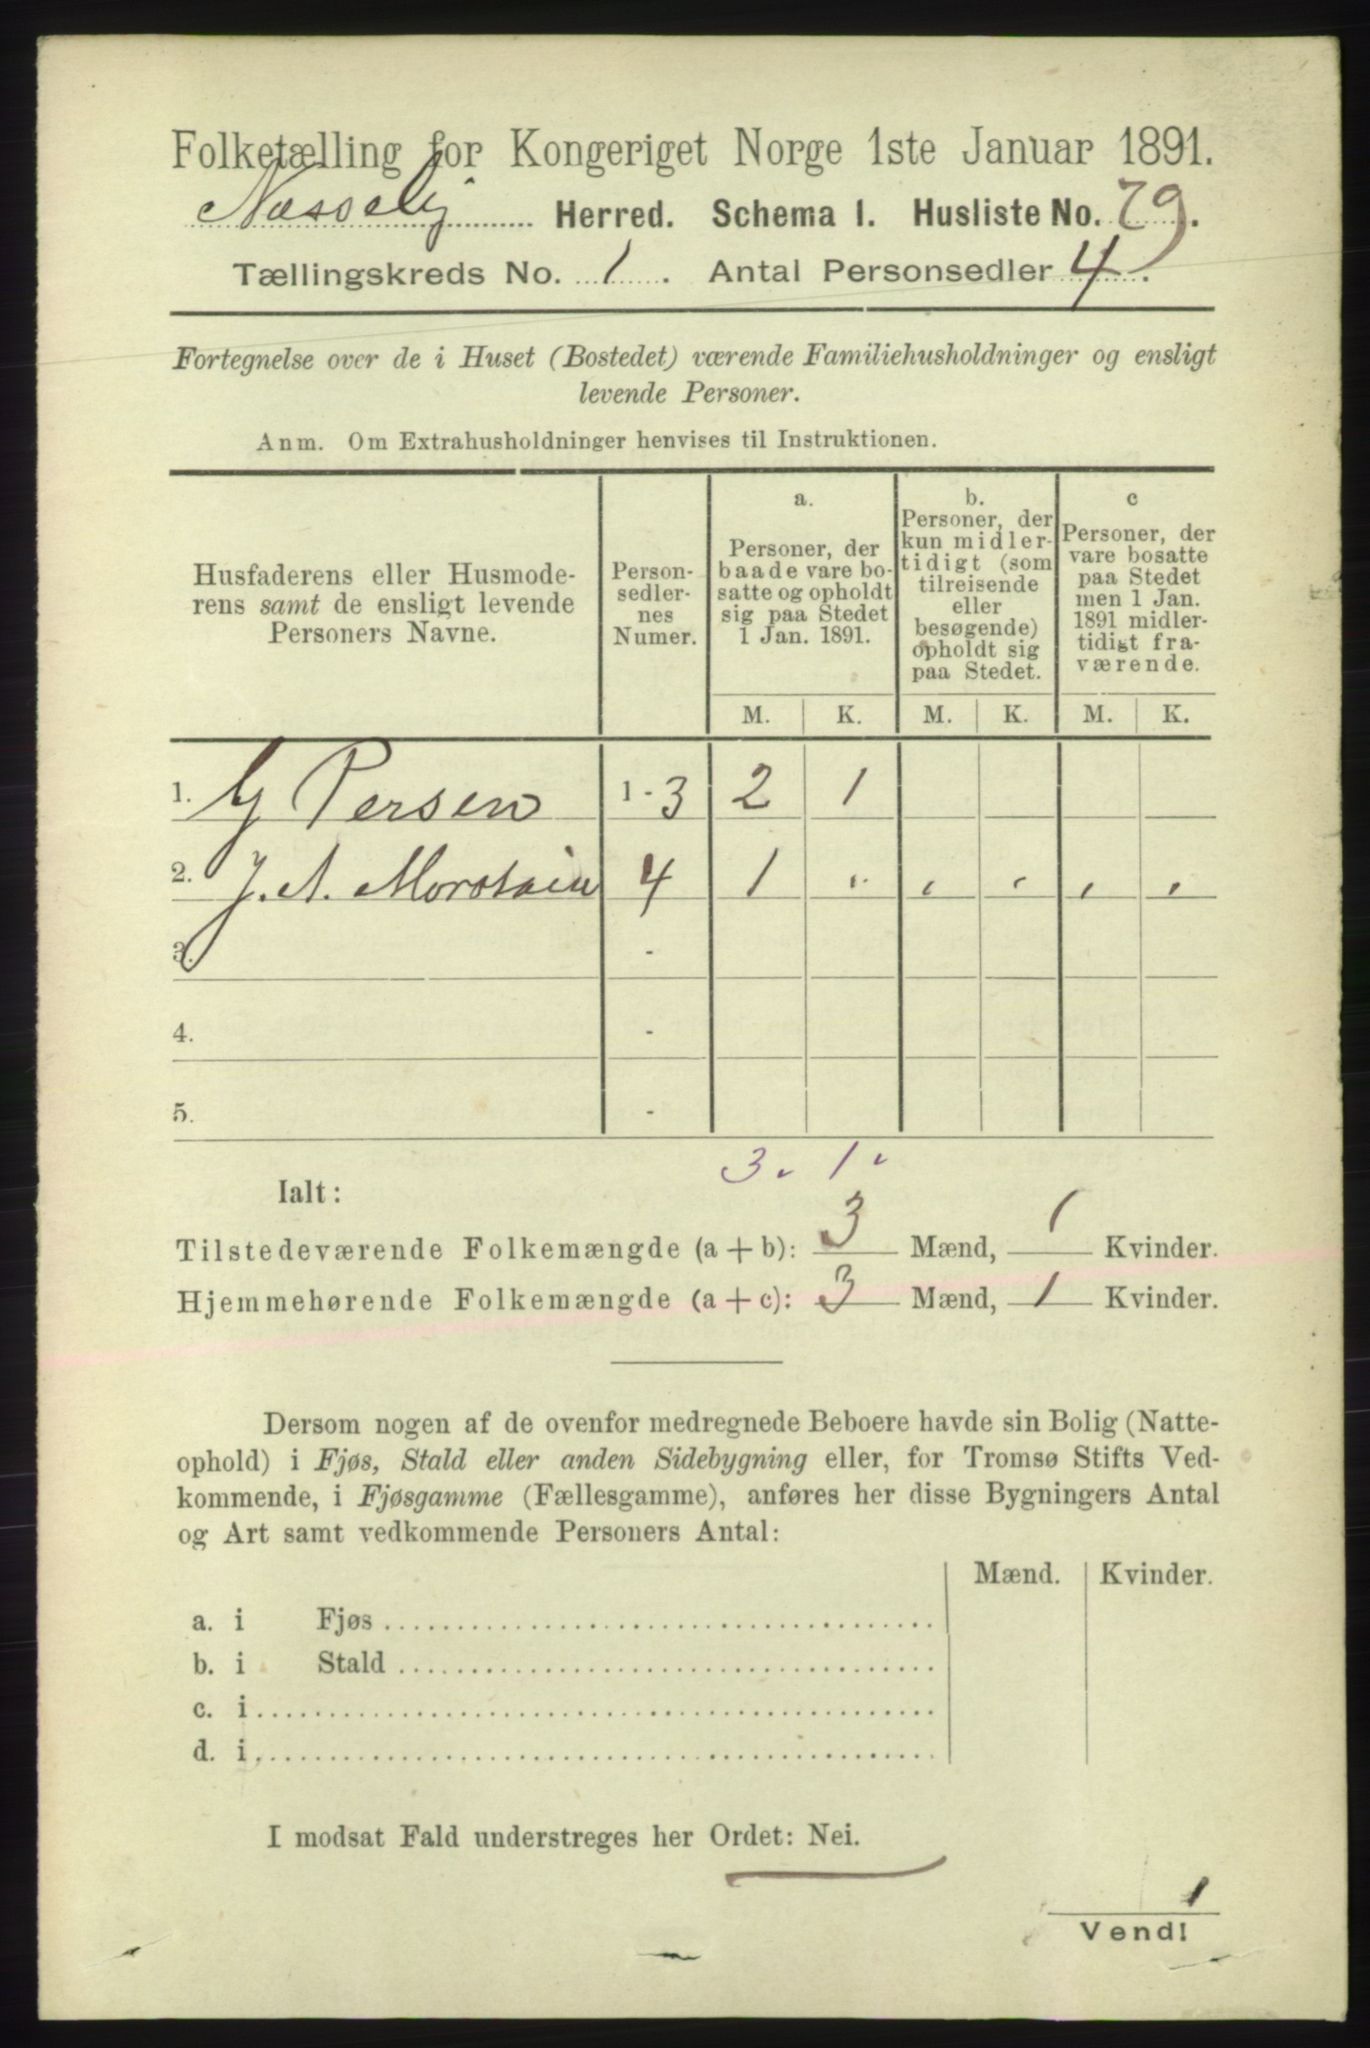 Folketælling for Kongeriget Norge 1ste Januar 1891.
Næsseby Herred. Schema 1. Husliste No. 79.
Tællingskreds No. 1. Antal Personsedler 4.
Fortegnelse over de i Huset (Bostedet) værende Familiehusholdninger og ensligt
levende Personer.
Anm. Om Extrahusholdninger henvises til Instruktionen.
Husfaderens eller Husmode-
rens samt de ensligt levende
Personers Navne.
Person-
sedler-
nes
Numer.
a.
Personer, der
baade vare bo-
satte og opholdt
sig paa Stedet
1 Jan. 1891.
b.
Personer, der
kun midler-
tidigt (som
tilreisende
eller
besøgende)
opholdt sig
paa Stedet.
c
Personer, der
vare bosatte
paa Stedet
men 1 Jan.
1891 midler-
tidigt fra-
værende.
M. K. M. K. M. K.
1. G Persen 1-3 2 1
2. J. A. 4 1 " " " " "
3. -
4. -
5. -
3. 1.
Ialt:
Tilstedeværende Folkemængde (a + b): 3 Mænd, 1 Kvinder.
Hjemmehørende Folkemængde (a + c): 3 Mænd, 1 Kvinder.
Dersom nogen af de ovenfor medregnede Beboere havde sin Bolig (Natte-
ophold) i Fjøs, Stald eller anden Sidebygning eller, for Tromsø Stifts Ved-
kommende, i Fjøsgamme (Fællesgamme), anføres her disse Bygningers Antal
og Art samt vedkommende Personers Antal:
Mænd. Kvinder.
a. i Fjøs
b. i Stald
c. i
d. i
I modsat Fald understreges her Ordet: Nei.
1
Vend!